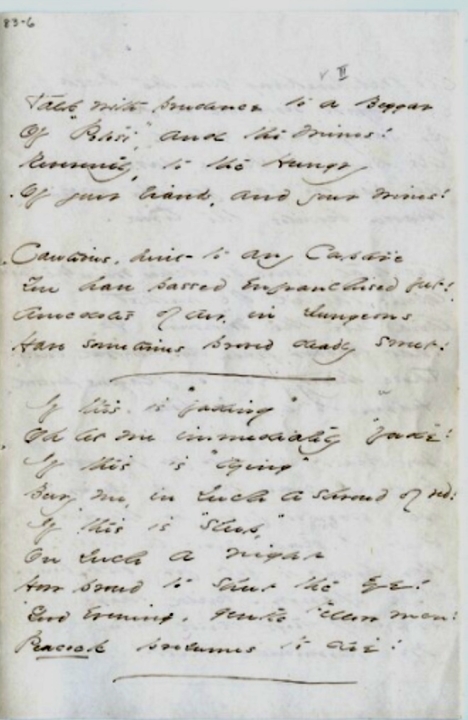 83-6
II
Talk with prudence to a Beggar
Of "Potosi," and the mines!
Reverently, to the Hungry
Of your viands, and your wines!
Cautious, hint to any Captive
You have passed enfranchised feet!
Anecdotes of air, in Dungeons
Have sometimes proved deadly sweet!
If this is "fading"
Oh let me immediately "fade"!
If this is "dying"
Bury me, in such a shroud of red!
If this is "sleep,"
On such a night
How proud to shut the Eye!
Good Evening, gentle Fellow men!
Peacock presumes to die!